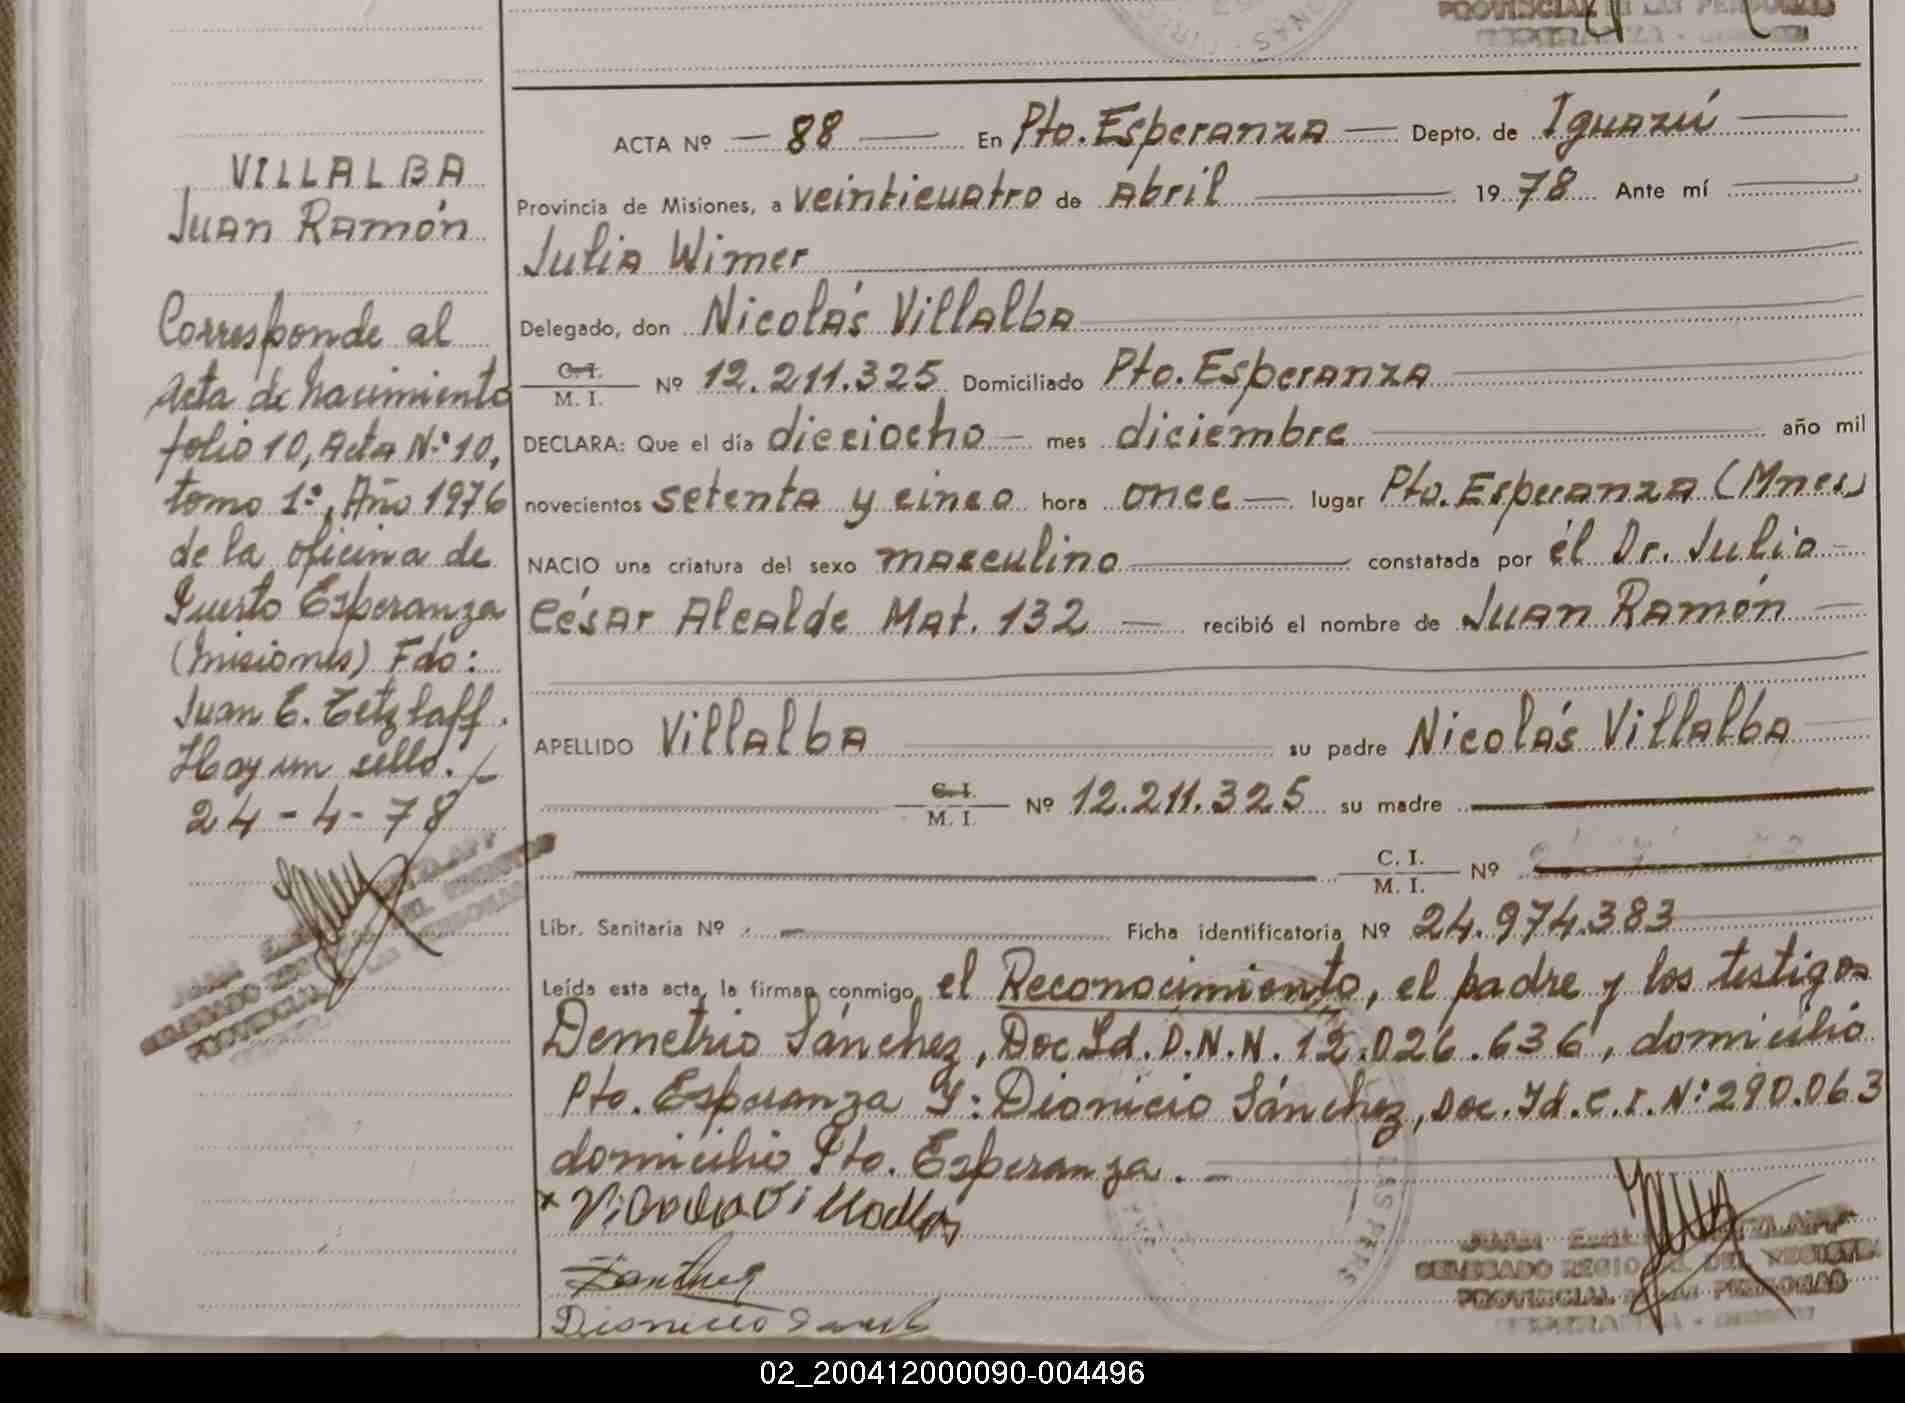 VILLALBA
Juan Ramón
Corresponde al
Acta de Nacimiento
folio 10, Acta N° 10,
tomo 1°, Año 1976
de la oficina de
Puerto Esperanza
(Misiones) Fdo:
Juan E. Tetzlaff.
Hay un sello.
24-4-78
PROVINCIAL DE LAS PERSONAS
ESPERANZA - MISIONES
ACTA Nº 88 En Pto. Esperanza Depto. de Iguazú
Provincia de Misiones, a veinticuatro de Abril 1978 Ante mí
Julia Wimer
Delegado, don Nicolás Villalba
C. I.
M. I. Nº 12.211.325 Domiciliado Pto. Esperanza
DECLARA: Que el día dieciocho mes diciembre año mil
novecientos setenta y cinco hora once lugar Pto. Esperanza (Mnes)
NACIO una criatura del sexo masculino constatada por él Dr. Julio
César Alcalde Mat. 132 recibió el nombre de Juan Ramón
APELLIDO Villalba su padre Nicolás Villalba
C. I.
M. I. Nº 12.211.325 su madre
C. I.
M. I. Nº
Libr. Sanitaria Nº Ficha identificatoria Nº 24.974.383
Leída esta acta, la firman conmigo, el Reconocimiento, el padre y los testigos
Demetrio Sánchez, Doc. Id. D.N.N. 12.026.636, domicilio
Pto. Esperanza Y: Dionicio Sánchez, Doc. Id. C.I. N° 290.063
domicilio Pto. Esperanza.
DELEGADO REGIONAL DEL REGISTRO
PROVINCIAL DE LAS PERSONAS
ESPERANZA - MISIONES
02_200412000090-004496